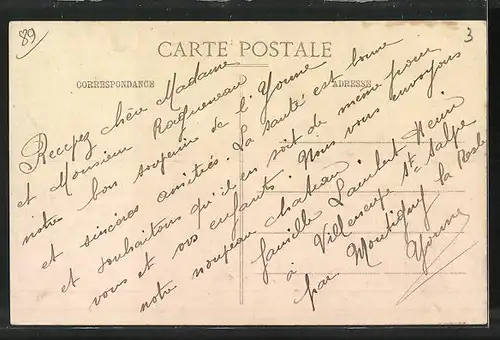 89
3
CARTE POSTALE
CORRESPONDANCE
ADRESSE
Recevez chère Madame
et Monsieur Ragueneau
notre bon souvenir de l'Yonne
et sincères amitiés. La santé est bonne
et souhaitons qu'il en soit de même pour
vous et vos enfants. Nous vous envoyons
notre nouveau chateau
famille Lambert Henri
à Villeneuve St Salve
par Montigny la Resle
Yonne